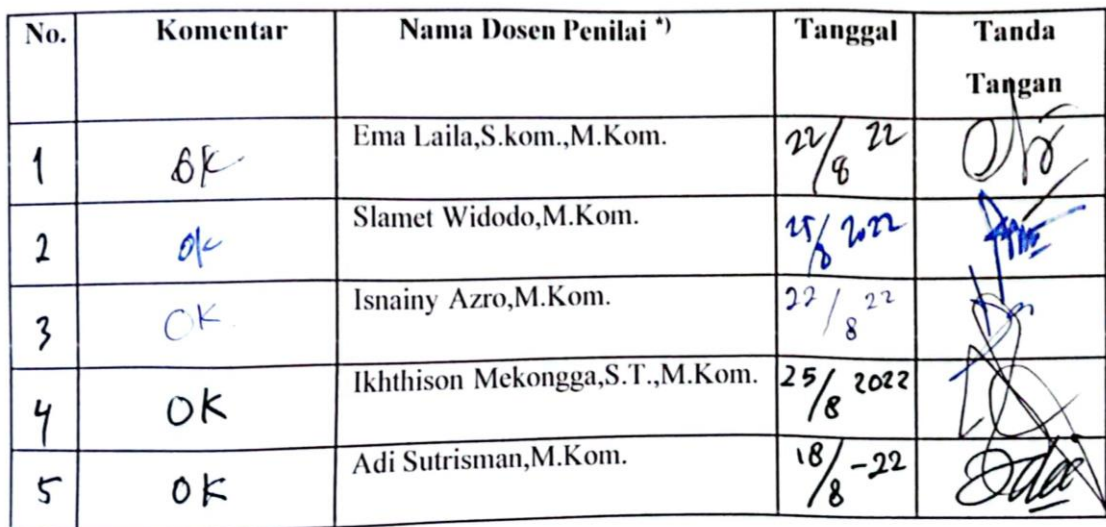 No. Komentar Nama Dosen Penilai *) Tanggal Tanda
Tangan
1 OK Ema Laila,S.kom.,M.Kom. 22/8 22
2 OK Slamet Widodo,M.Kom. 25/8 2022
3 OK Isnainy Azro,M.Kom. 22/8 22
4 OK Ikhthison Mekongga,S.T.,M.Kom. 25/8 2022
5 OK Adi Sutrisman,M.Kom. 18/8 -22